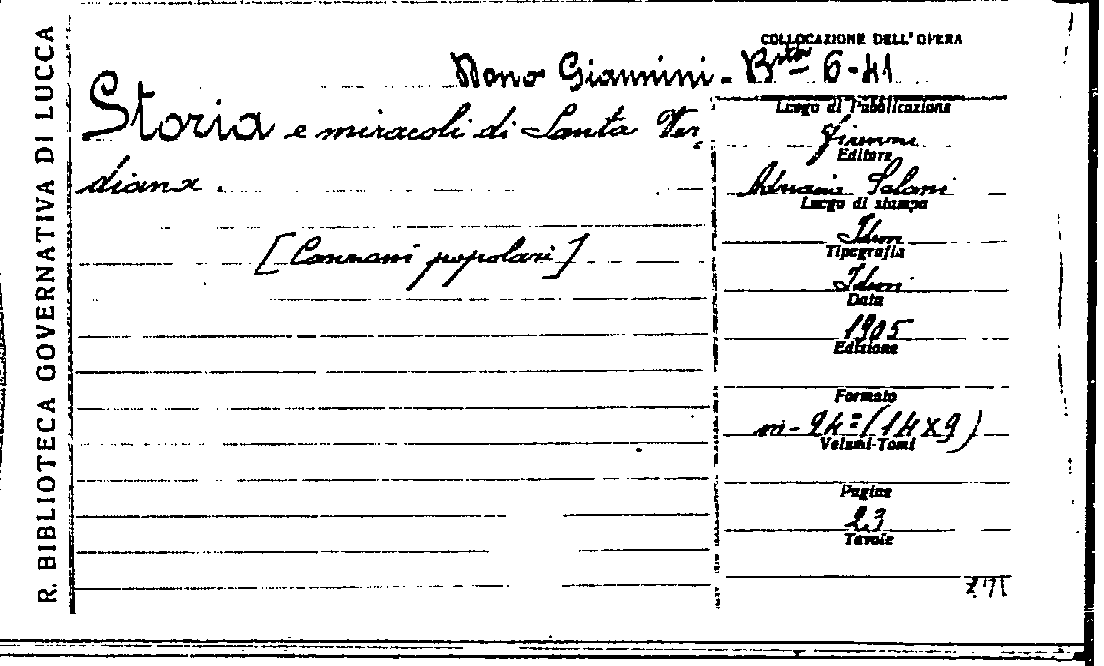 R. BIBLIOTECA GOVERNATIVA DI LUCCA
COLLOCAZIONE DELL'OPERA
Dono Giannini - B.ta 6-41
Storia e miracoli di Santa Ver
diana.
[Canzoni popolari]
Luogo di Pubblicazione
Firenze
Editore
Adriano Salani
Luogo di stampa
Idem
Tipografia
Idem
Data
1905
Edizione
Formato
in-24º (14x9)
Volumi-Tomi
Pagine
23
Tavole